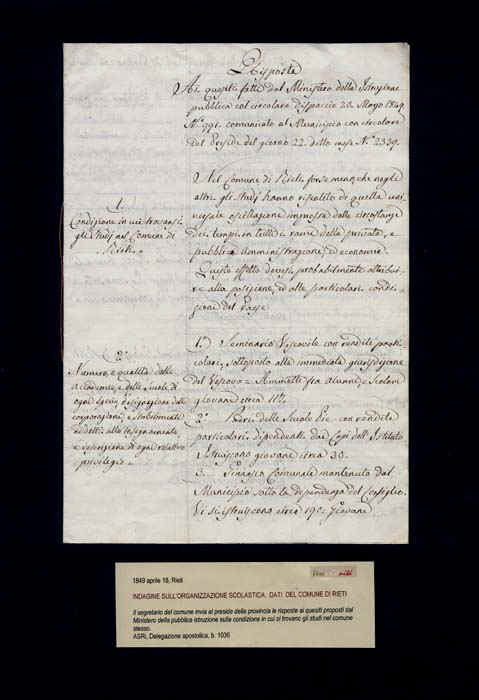 Risposte
Ai quesiti fatti dal Ministero della Istruzione
pubblica col circolare Dispaccio 20. Marzo 1849
N.° 991. comunicato al Municipio con circolare
del Preside del giorno 22. detto mese N.° 2339.
1.
Condizione in cui trovansi
gli Studj nel Comune di
Rieti.
Nel Comune di Rieti forse meno che negli
altri gli Studj hanno risentito di quella uni-
versale oscillazione immossa dalle circostanze
dei tempi in tutti i rami della privata, e
pubblica amministrazione, ed economia.
Questo effetto devesi probabilmente attribui-
re alla posizione, ed alle particolari condi-
zioni del Paese.
2.
Numero, e qualità delle
Accademie, e delle Scuole di
ogni
corporazioni, e stabilimenti
addetti allo insegnamento
e di ogni relativo
privilegio.
1.° Seminario Vescovile con rendite parti-
colari, sottoposto alla immediata giurisdizione
del Vescovo. Ammette fra Alunni, e Scolari
giovani circa
2.° Padri delle Scuole Pie con rendite
particolari, dipendenti dai Capi dell'Istituto
Istruiscono giovani circa 30.
3. Ginnasio Comunale mantenuto dal
Municipio sotto la dipendenza del Consiglio.
Vi si istruiscono circa 190. Giovani
1849 aprile 18, Rieti
INDAGINE SULL'ORGANIZZAZIONE SCOLASTICA. DATI DEL COMUNE DI RIETI
Il segretario del comune invia al preside della provincia le risposte ai quesiti proposti dal
Ministero della pubblica istruzione sulla condizione in cui si trovano gli studi nel comune
stesso.
ASRi, Delegazione apostolica, b. 1036